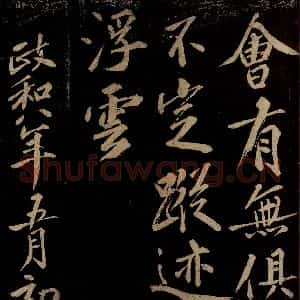 會有無俱
不定蹤迹
浮雲
政和八年五月初
Shufawang.CN